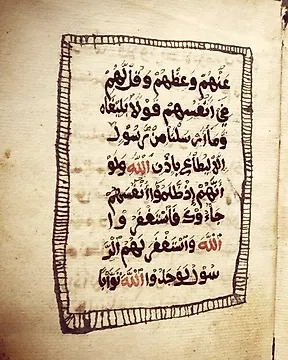 عنهم وعظهم وقل لهم
في أنفسهم قولا بليغا
وما أرسلنا من رسول
إلا ليطاع بإذن الله ولو
أنهم إذ ظلموا أنفسهم
جاءوك فاستغفروا
الله واستغفر لهم الر
سول لوجدوا الله توابا